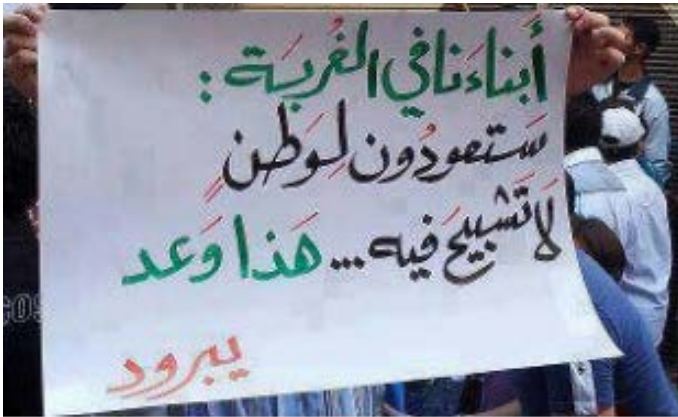 أبناءَنا في الغُربَة :
سَتعودُون لِوَطنٍ
لَا تَشبيحَ فيه... هَذا وَعد
يبرود